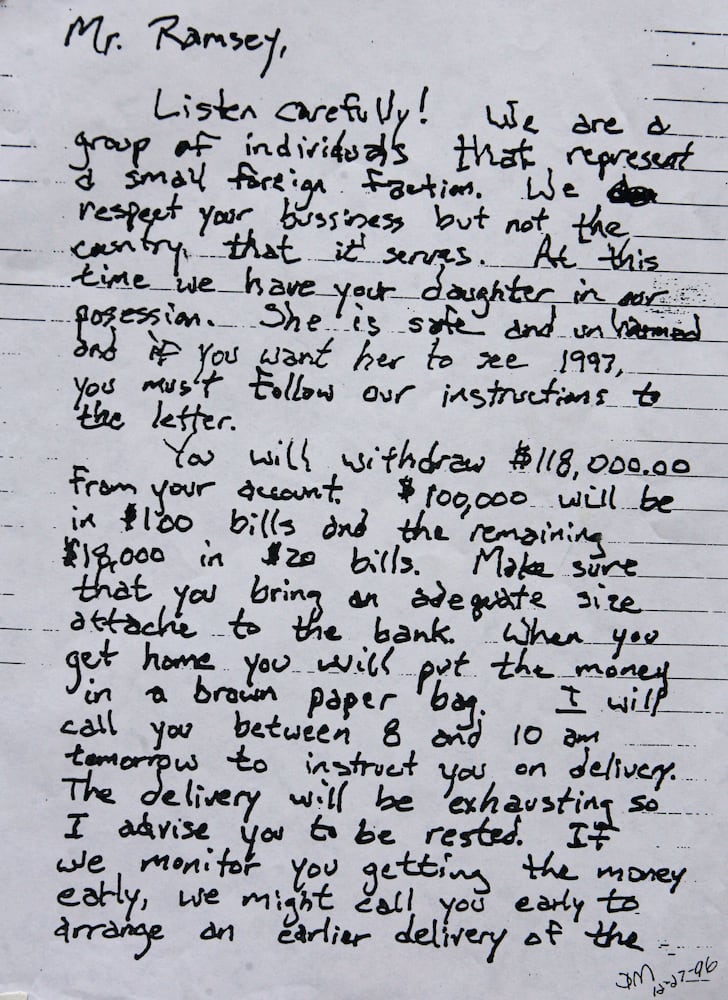 Mr. Ramsey,
Listen carefully! We are a
group of individuals that represent
a small foreign faction. We
respect your bussiness but not the
country that it serves. At this
time we have your daughter in our
posession. She is safe and unharmed
and if you want her to see 1997,
you must follow our instructions to
the letter.
You will withdraw $118,000.00
from your account. $100,000 will be
in $100 bills and the remaining
$18,000 in $20 bills. Make sure
that you bring an adequate size
attache to the bank. When you
get home you will put the money
in a brown paper bag. I will
call you between 8 and 10 am
tomorrow to instruct you on delivery.
The delivery will be exhausting so
I advise you to be rested. If
we monitor you getting the money
early, we might call you early to
arrange an earlier delivery of the
12-27-96